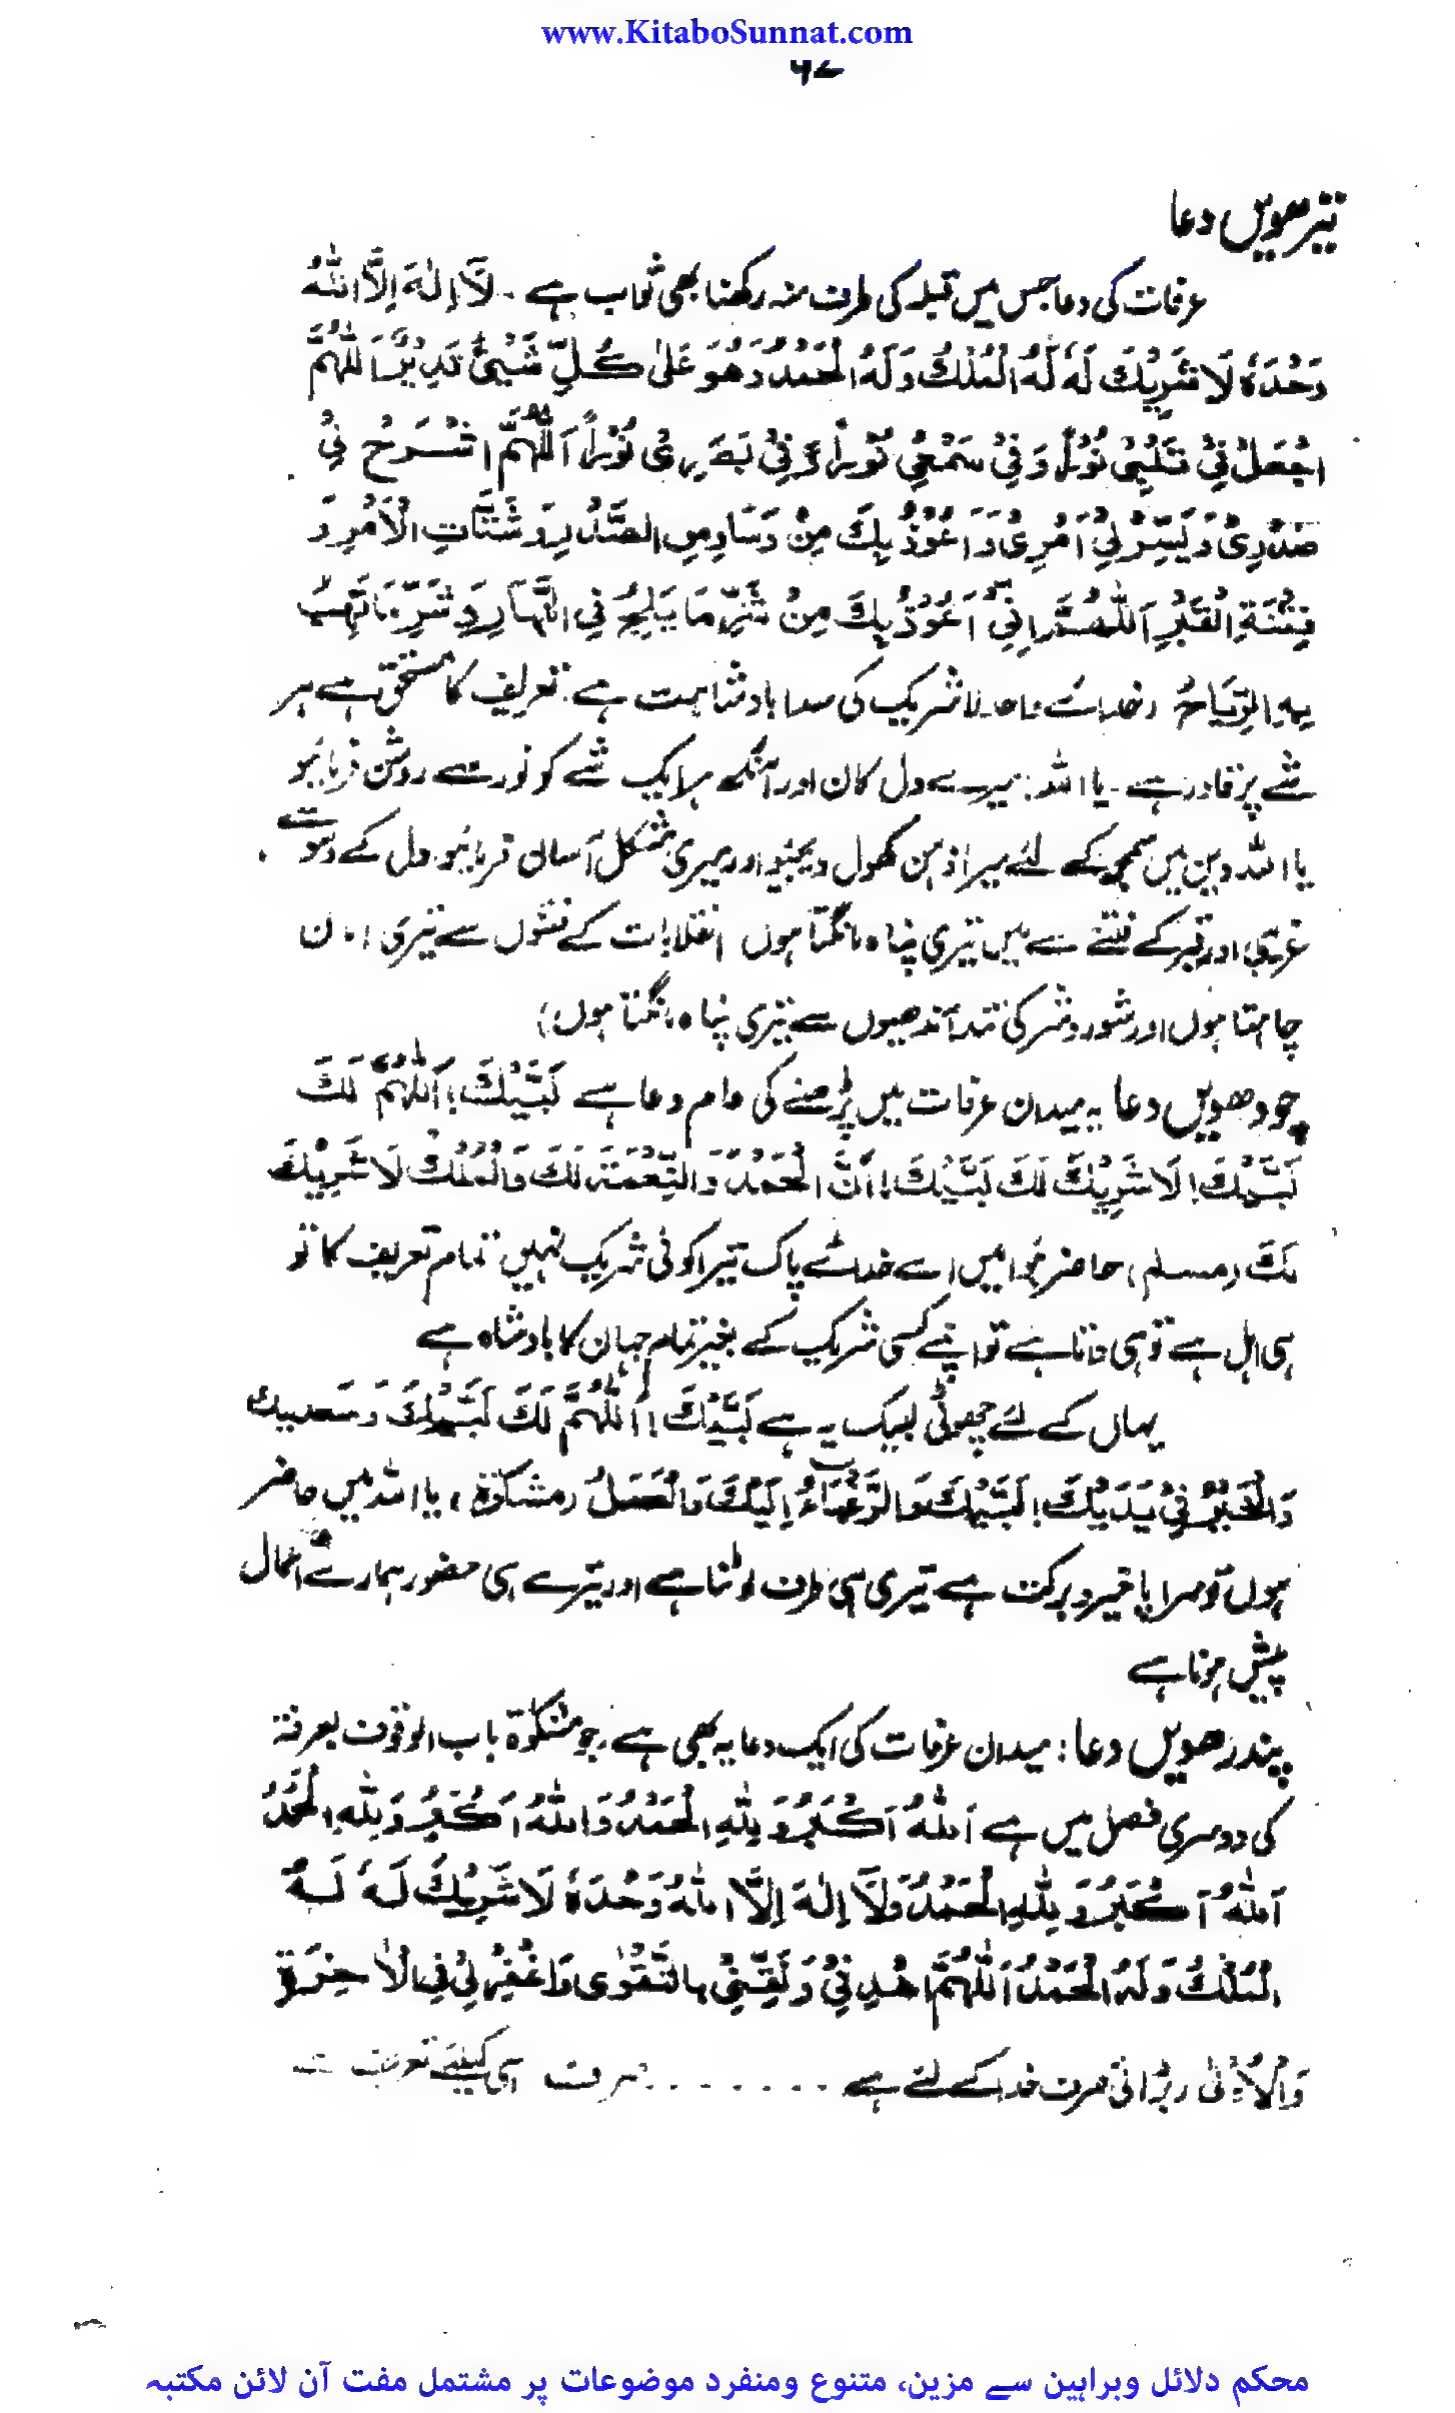 www.KitaboSunnat.com
۶۷
تیرھویں دعا
عرفات کی دعا جس میں قبلہ کی طرف منہ رکھنا بھی ثواب ہے۔ لَآ اِلٰہَ اِلَّا اللّٰہُ
وَحْدَہٗ لَا شَرِیْکَ لَہٗ لَہُ الْمُلْکُ وَلَہُ الْحَمْدُ وَھُوَ عَلٰی کُلِّ شَیْئٍ قَدِیْرٌ اَللّٰھُمَّ
اجْعَلْ فِیْ قَلْبِیْ نُوْراً وَفِیْ سَمْعِیْ نُوْراً وَّفِیْ بَصَرِیْ نُوْراً اَللّٰھُمَّ اشْرَحْ لِیْ
صَدْرِیْ وَیَسِّرْ لِیْ اَمْرِیْ وَاَعُوْذُ بِکَ مِنْ وَسَاوِسِ الصَّدْرِ وَشَتَّاتِ الْاَمْرِ وَ
فِتْنَۃِ الْقَبْرِ اَللّٰھُمَّ اِنِّیْٓ اَعُوْذُ بِکَ مِنْ شَرِّ مَا یَلِجُ فِی النَّھَارِ وَشَرِّ مَا تَھُبُّ
بِہِ الرِّیَاحُ (خدائے واحد لا شریک کی سدا بادشاہت ہے۔ تعریف کا مستحق ہے ہر
شے پر قادر ہے۔ یا اللہ! میرے دل کان اور آنکھ ہر ایک شے کو نور سے روشن فرمائیو
یا اللہ دین میں سمجھ کے لئے میرا ذہن کھول دیجیو اور میری مشکل آسان فرمائیو۔ دل کے وسوسے
غریبی اور قبر کے فتنے سے میں تیری پناہ مانگتا ہوں انقلابات کے فتنوں سے تیری امان
چاہتا ہوں اور شور و شر کی تند آندھیوں سے تیری پناہ مانگتا ہوں)
چودھویں دعا یہ میدان عرفات میں پڑھنے کی عام دعا ہے لَبَّیْکَ! اَللّٰھُمَّ لَکَ
لَبَّیْکَ! لَا شَرِیْکَ لَکَ لَبَّیْکَ! اَنَّ الْحَمْدَ وَالنِّعْمَۃَ لَکَ وَالْمُلْکَ لَا شَرِیْکَ
لَکَ (مسلم) حاضر ہوا میں اے خدائے پاک تیرا کوئی شریک نہیں تمام تعریف کا تو
ہی اہل ہے تو ہی داتا ہے تو اپنے کسی شریک کے بغیر تمام جہان کا بادشاہ ہے
یہاں کے لئے چھوٹی لبیک یہ ہے لَبَّیْکَ! اَللّٰھُمَّ لَکَ لَبَّیْکَ وَسَعدیک
وَالْخَیْرُ فِیْ یَدَیْکَ! لَبَّیْکَ وَالرَّغْبَاءُ اِلَیْکَ وَالْعَمَلُ (مشکوۃ) یا اللہ میں حاضر
ہوں تو سراپا خیر و برکت ہے تیری ہی طرف لوٹنا ہے اور تیرے ہی حضور ہمارے اعمال
پیش ہونا ہے
پندرھویں دعا: میدان عرفات کی ایک دعا یہ بھی ہے، جو مشکوٰۃ باب الوقوف بعرفۃ
کی دوسری فصل میں ہے اَللّٰہُ اَکْبَرُ وَلِلّٰہِ الْحَمْدُ وَاللّٰہُ اَکْبَرُ وَلِلّٰہِ الْحَمْدُ
اَللّٰہُ اَکْبَرُ وَلِلّٰہِ الْحَمْدُ وَلَآ اِلٰہَ اِلَّا اللّٰہُ وَحْدَہٗ لَا شَرِیْکَ لَہٗ لَہُ
الْمُلْکُ وَلَہُ الْحَمْدُ اَللّٰھُمَّ اھْدِنِیْ وَنَقِّنِیْ بِالتَّقْوٰی وَاغْفِرْ لِیْ فِی الْاٰخِرَۃِ
وَالْاُوْلٰی (بڑائی صرف خدا کے لئے ہے ........ صرف اسی کیلئے تعریف ہے
محکم دلائل وبراہین سے مزین، متنوع ومنفرد موضوعات پر مشتمل مفت آن لائن مکتبہ